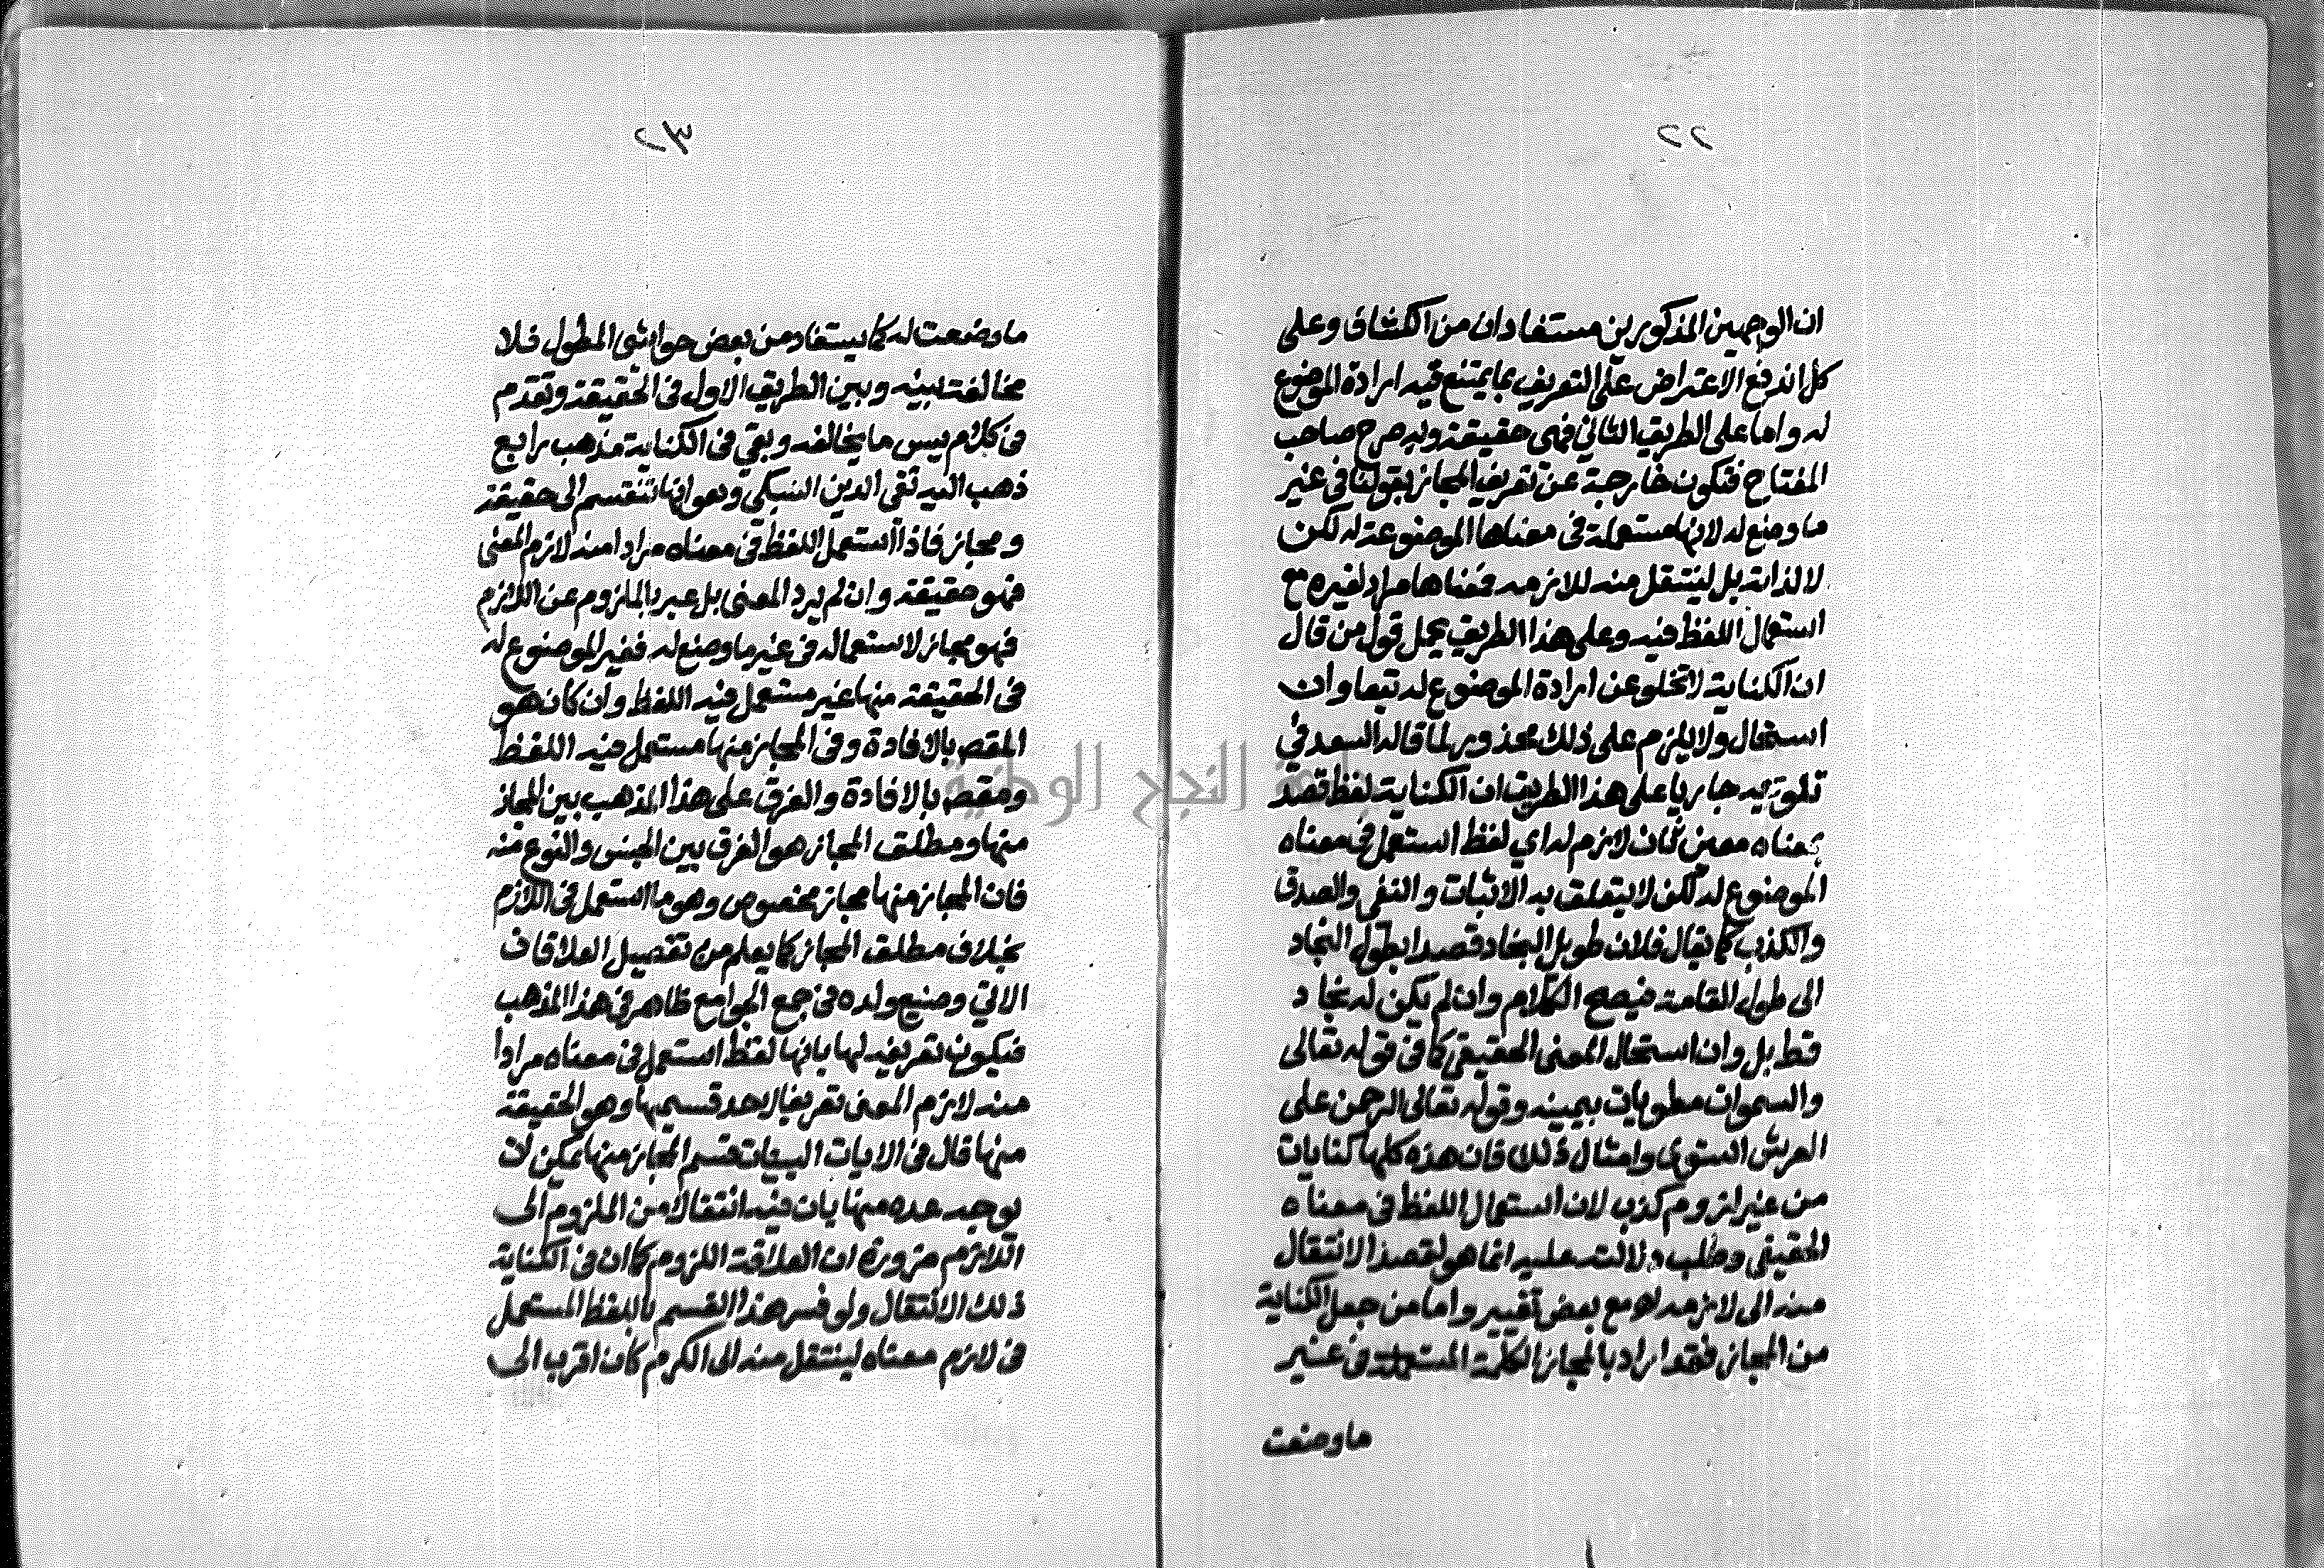 ٢٢
ان الوجهين المذكورين مستفادان من الكشاف وعلى
كل اندفع الاعتراض على التعريف بما يمتنع فيه ارادة الموضوع
له واما على الطريق الثاني فهي حقيقة وبه صرح صاحب
المفتاح فتكون خارجة عن تعريف المجاز بقولنا في غير
ما وضع له لانها مستعملة في معناها الموضوعة له لكن
لا لذاته بل لينتقل منه للازمه فمعناها مراد لغيره مع
استعمال اللفظ فيه وعلى هذا الطريق يحمل قول من قال
ان الكناية لا تخلو عن ارادة الموضوع له تبعا وان
استحال ولا يلزم على ذلك محذور لما قاله السعد في
تلويحه جاريا على هذا الطريق ان الكناية لفظ قصد
بمعناه معنى ثان لازم له اي لفظ استعمل في معناه
الموضوع له لكن لا يتعلق به الاثبات والنفي والصدق
والكذب كما يقال فلان طويل النجاد قصدا بطول النجاد
الى طول القامة فيصح الكلام وان لم يكن له نجاد
قط بل وان استحال المعنى الحقيقي كما في قوله تعالى
والسموات مطويات بيمينه وقوله تعالى الرحمن على
العرش استوى وامثال ذلك فان هذه كلها كنايات
من غير لزوم كذب لان استعمال اللفظ في معناه
الحقيقي وطلب دلالته عليه انما هو لقصد الانتقال
منه الى لازمه اهـ مع بعض تغيير واما من جعل الكناية
من المجاز فقد اراد بالمجاز الكلمة المستعملة في غير
ما وضعت
٢٣
ما وضعت له كما يستفاد من بعض حواشي المطول فلا
مخالفت بينه وبين الطريق الاول في الحقيقة وتقدم
في كلام يس ما يخالفه وبقي في الكناية مذهب رابع
ذهب اليه تقي الدين السبكي وهو انها تنقسم الى حقيقة
ومجاز فاذا استعمل اللفظ في معناه مرادا منه لازم المعنى
فهو حقيقة وان لم يرد المعنى بل عبر بالملزوم عن اللازم
فهو مجاز لاستعماله في غير ما وضع له فغير الموضوع له
في الحقيقة منها غير مستعمل فيه اللفظ وان كان هو
المقص بالافادة وفي المجاز منها مستعمل فيه اللفظ
ومقص بالافادة والفرق على هذا المذهب بين المجاز
منها ومطلق المجاز هو الفرق بين الجنس والنوع منه
فان المجاز منها مجاز مخصوص وهو ما استعمل في اللازم
بخلاف مطلق المجاز كما يعلم من تفصيل العلاقات
الاتي وصنيع ولده في جمع الجوامع ظاهر في هذا المذهب
فيكون تعريفه لها بانها لفظ استعمل في معناه مرادا
منه لازم المعنى تعريفا لاحد قسميها وهو الحقيقة
منها قال في الايات البينات قسم المجاز منها يمكن ان
يوجه عده منها بان فيه انتقالا من الملزوم الى
اللازم ضرورة ان العلاقة اللزوم كما ان في الكناية
ذلك الانتقال ولو فسر هذا القسم باللفظ المستعمل
في لازم معناه لينتقل منه الى الكرم كان اقرب الى
النجاح الوطنية